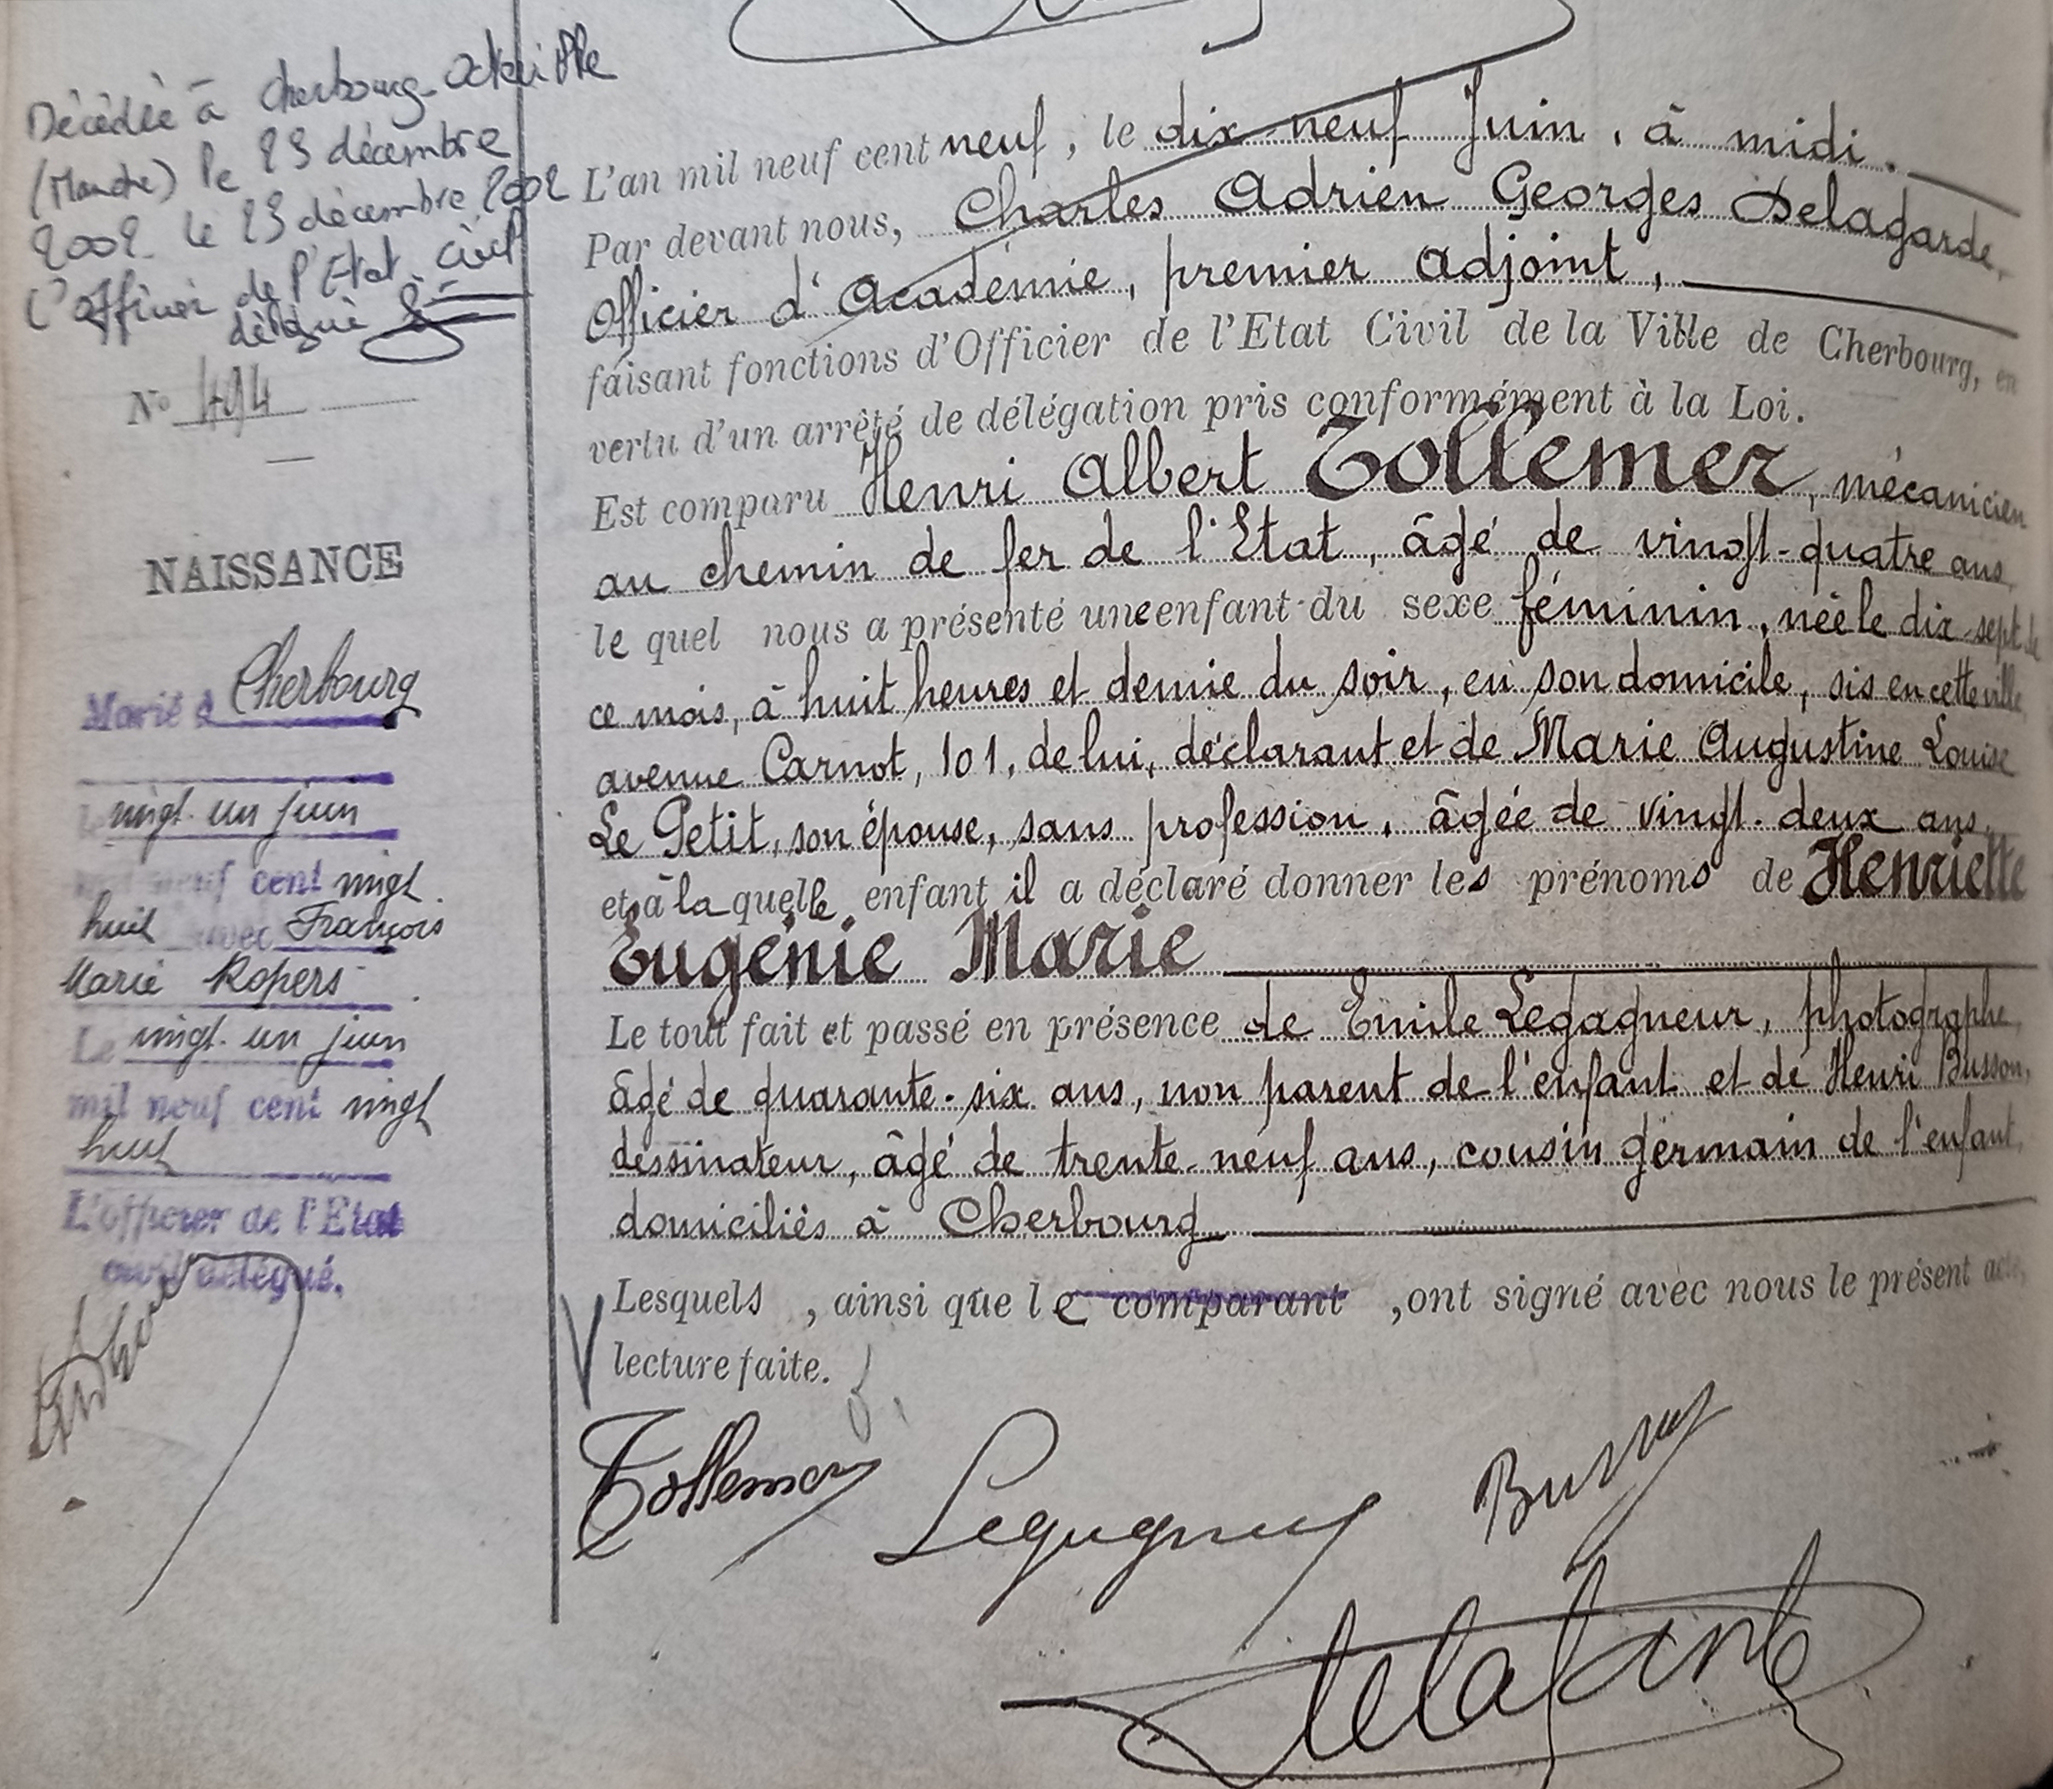 Décédée à Cherbourg-Octeville
(Manche) le 23 décembre
2002. le 23 décembre 2002
L'officier de l'Etat civil
délégué
N° 494
NAISSANCE
Marié à Cherbourg
vingt un juin
mil neuf cent vingt
huit avec François
Marie Ropers
Le vingt un juin
mil neuf cent vingt
huit
L'officier de l'Etat
civil délégué.
L'an mil neuf cent neuf, le dix-neuf Juin, à midi.
Par devant nous, Charles Adrien Georges Delagarde,
Officier d'Académie, premier adjoint,
faisant fonctions d'Officier de l'Etat Civil de la Ville de Cherbourg, en
vertu d'un arrêté de délégation pris conformément à la Loi.
Est comparu Henri Albert Tollemer, mécanicien
au chemin de fer de l'Etat, âgé de vingt-quatre ans
le quel nous a présenté une enfant du sexe féminin, née le dix-sept de
ce mois, à huit heures et demie du soir, en son domicile, sis en cette ville
avenue Carnot, 101, de lui, déclarant et de Marie Augustine Louise
Le Petit, son épouse, sans profession, âgée de vingt-deux ans,
et à la quelle enfant il a déclaré donner les prénoms de Henriette
Eugénie Marie
Le tout fait et passé en présence de Emile Legagneur, photographe,
âgé de quarante-six ans, non parent de l'enfant et de Henri Busson,
dessinateur, âgé de trente-neuf ans, cousin germain de l'enfant,
domiciliés à Cherbourg
Lesquels, ainsi que le comparant, ont signé avec nous le présent acte,
lecture faite.
Tollemer Legagneur Busson
Delagarde